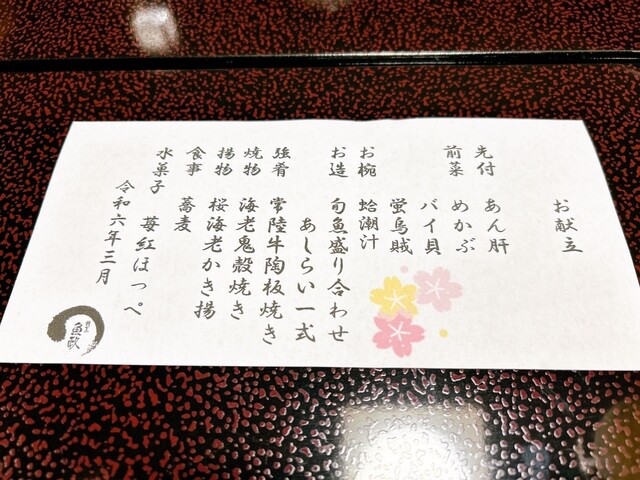 お献立
先付 あん肝
前菜 めかぶ
バイ貝
蛍烏賊
お椀 蛤潮汁
お造 旬魚盛り合わせ
あしらい一式
強肴 常陸牛陶板焼き
焼物 海老鬼殻焼き
揚物 桜海老かき揚
食事 蕎麦
水菓子 苺紅ほっぺ
令和六年三月
魚歌